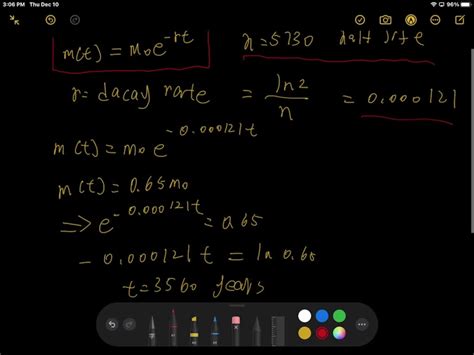 3:06 PM Thu Dec 10
m(t) = m₀e^-rt n = 5730 half life
r = dacay rate = ln2/n = 0.000121
m(t) = m₀ e^-0.000121t
m(t) = 0.65m₀
⟹ e^-0.000121t = 0.65
- 0.000121 t = ln 0.65
t = 3560 years